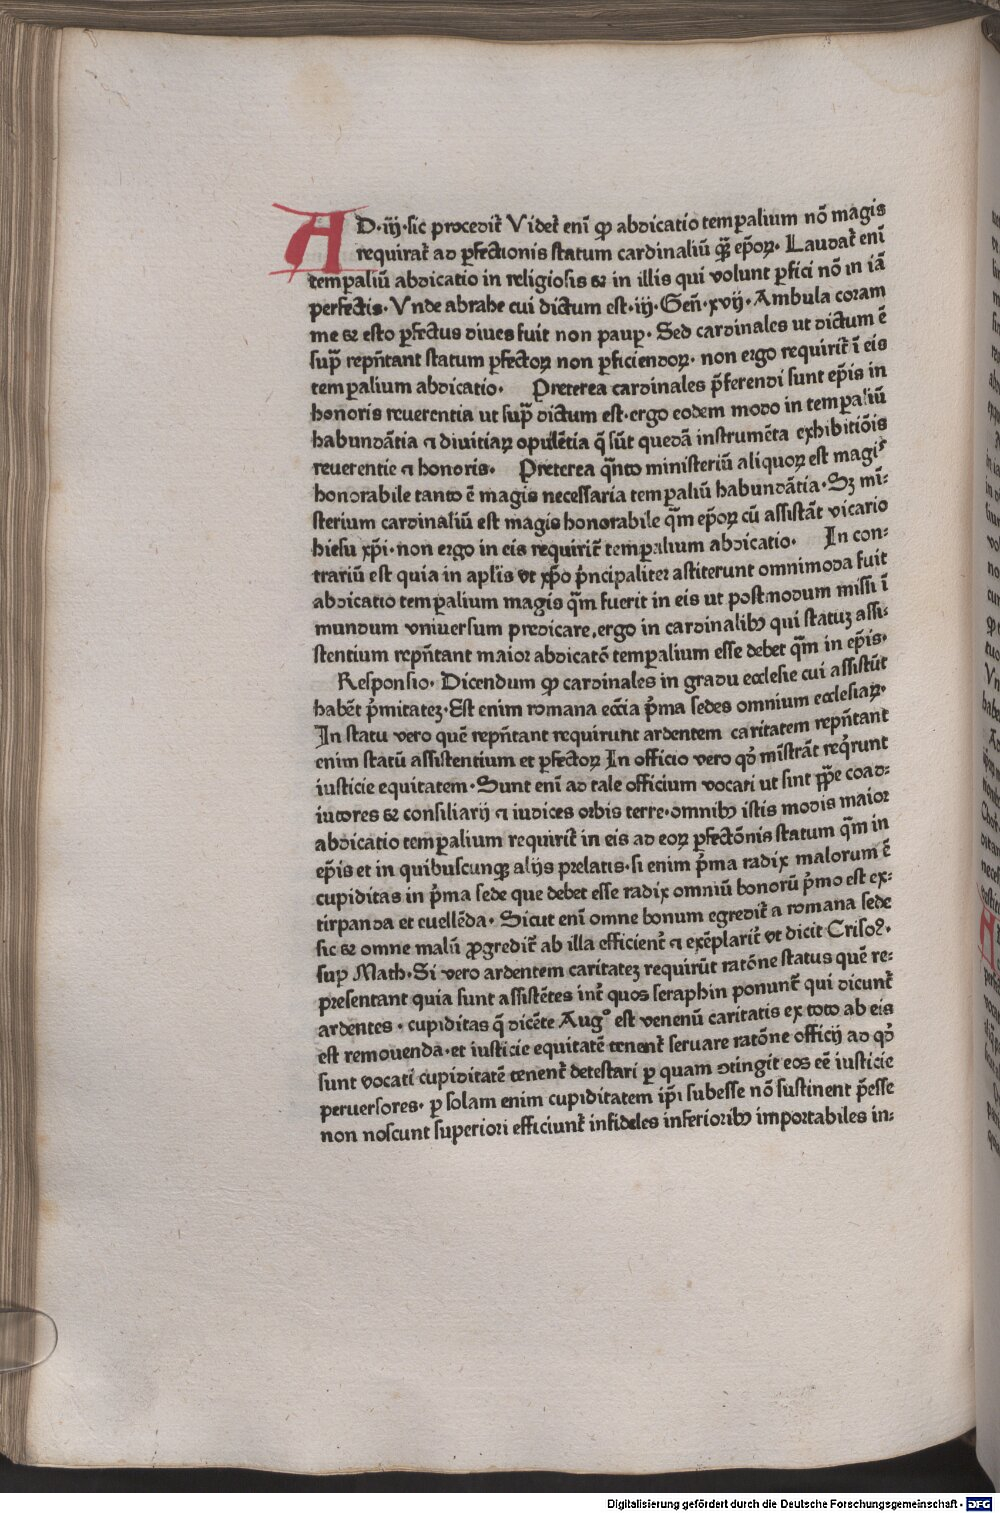 AD·iij·sic procedit᷑ Videt᷑ enī ꝙ abdicatio temꝑalium nō magis
requirat᷑ ad ꝑfectionis statum cardinaliū qꝫ̄ ep̄oꝝ· Laudat᷑ enī
temꝑaliū abdicatio in religiosis & in illis qui volunt ꝑfici nō in iā
perfectis· Vnde abrahe cui dictum est·iij·Gen̄·xvij·Ambula coram
me & esto ꝑfectus diues fuit non pauꝑ· Sed cardinales ut dictum ē
supͣ repn̄tant statum ꝑfectoꝝ non ꝑficiendoꝝ· non ergo requirit᷑ ī eis
temꝑalium abdicatio· Preterea cardinales p̄ferendi sunt ep̄is in
honoris reuerentia ut supͣ dictum est·ergo eodem modo in temꝑaliū
habundātia ⁊ diuitiaꝝ opulētia q̄ sūt quedā instrumēta exhibitiōis
reuerentie ⁊ honoris· Preterea qn̄to ministeriū aliquoꝝ est magis
honorabile tanto ē magis necessaria temꝑaliū habundātia·Sꝫ mī-
sterium cardinaliū est magis honorabile qm̄ ep̄oꝝ cū assistāt vicario
hiesu xp̄i·non ergo in eis requirit᷑ temꝑalium abdicatio· In con-
trariū est quia in apl̄is vt xp̄o p̄ncipaliter astiterunt omnimoda fuit
abdicatio temꝑalium magis qm̄ fuerit in eis ut postmodum missi ī
mundum vniuersum predicare.ergo in cardinalibꝫ qui statuꝫ assi-
stentium repn̄tant maior abdicatō temꝑalium esse debet qm̄ in ep̄is·
Responsio· Dicendum ꝙ cardinales in gradu ecclesie cui assistūt
habēt pͥmitateꝫ·Est enim romana ecc̄ia pͥma sedes omnium ecclesiaꝝ·
In statu vero quē repn̄tant requirunt ardentem caritatem repn̄tant
enim statū assistentium et ꝑfectoꝝ In officio vero qd̓ mīstrāt reqͥrunt
iusticie equitatem·Sunt enī ad tale officium vocati ut sint ꝓp̄e coad-
iutores & consiliarij ⁊ iudices orbis terre·omnibꝫ istis modis maior
abdicatio temꝑalium requirit᷑ in eis ad eoꝝ ꝑfectōnis statum qm̄ in
ep̄is et in quibuscunqꝫ alijs prelatis·si enim pͥma radix malorum ē
cupiditas in pͥma sede que debet esse radix omniū bonorū pͥmo est ex-
tirpanda et euellēda· Sicut enī omne bonum egredit᷑ a romana sede
sic & omne malū ꝓgredit᷑ ab illa efficient᷑ ⁊ exēplarit᷑ vt dicit Crisoꝰ·
suꝑ Math·Si vero ardentem caritateꝫ requirūt ratōne status quē re-
presentant quia sunt assistētes int᷑ quos seraphin ponunt᷑ qui dicunt᷑
ardentes · cupiditas q̄ dicēte Augꝰ est venenū caritatis ex toto ab eis
est remouenda·et iusticie equitatē tenent᷑ seruare ratōne officij ad qd̓
sunt vocati cupiditatē tenent᷑ detestari ꝑ quam ↄtingit eos eē iusticie
peruersores· ꝑ solam enim cupiditatem ip̄i subesse nō sustinent p̄esse
non noscunt superiori efficiunt᷑ infideles inferioribꝫ importabiles in-
Digitalisierung gefördert durch die Deutsche Forschungsgemeinschaft - DFG